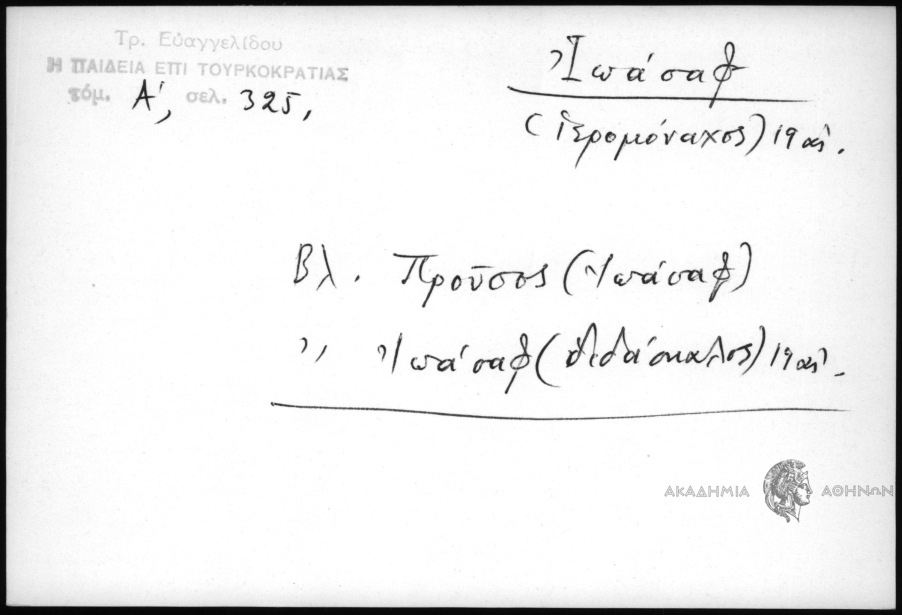 Τρ. Εὐαγγελίδου
Η ΠΑΙΔΕΙΑ ΕΠΙ ΤΟΥΡΚΟΚΡΑΤΙΑΣ
τόμ. Α', σελ. 325,
Ἰωάσαφ
(ἱερομόναχος) 19 αἰ.
Βλ. Προῦσος (Ἰωάσαφ)
” Ἰωάσαφ (διδάσκαλος) 19 αἰ.
ΑΚΑΔΗΜΙΑ ΑΘΗΝΩΝ